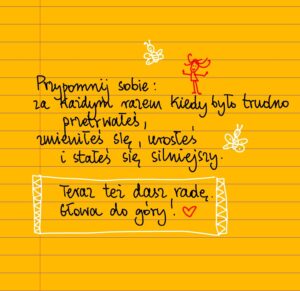 Przypomnij sobie:
za każdym razem kiedy było trudno
przetrwałeś,
zmieniłeś się, urosłeś
i stałeś się silniejszy.
Teraz też dasz radę.
Głowa do góry!